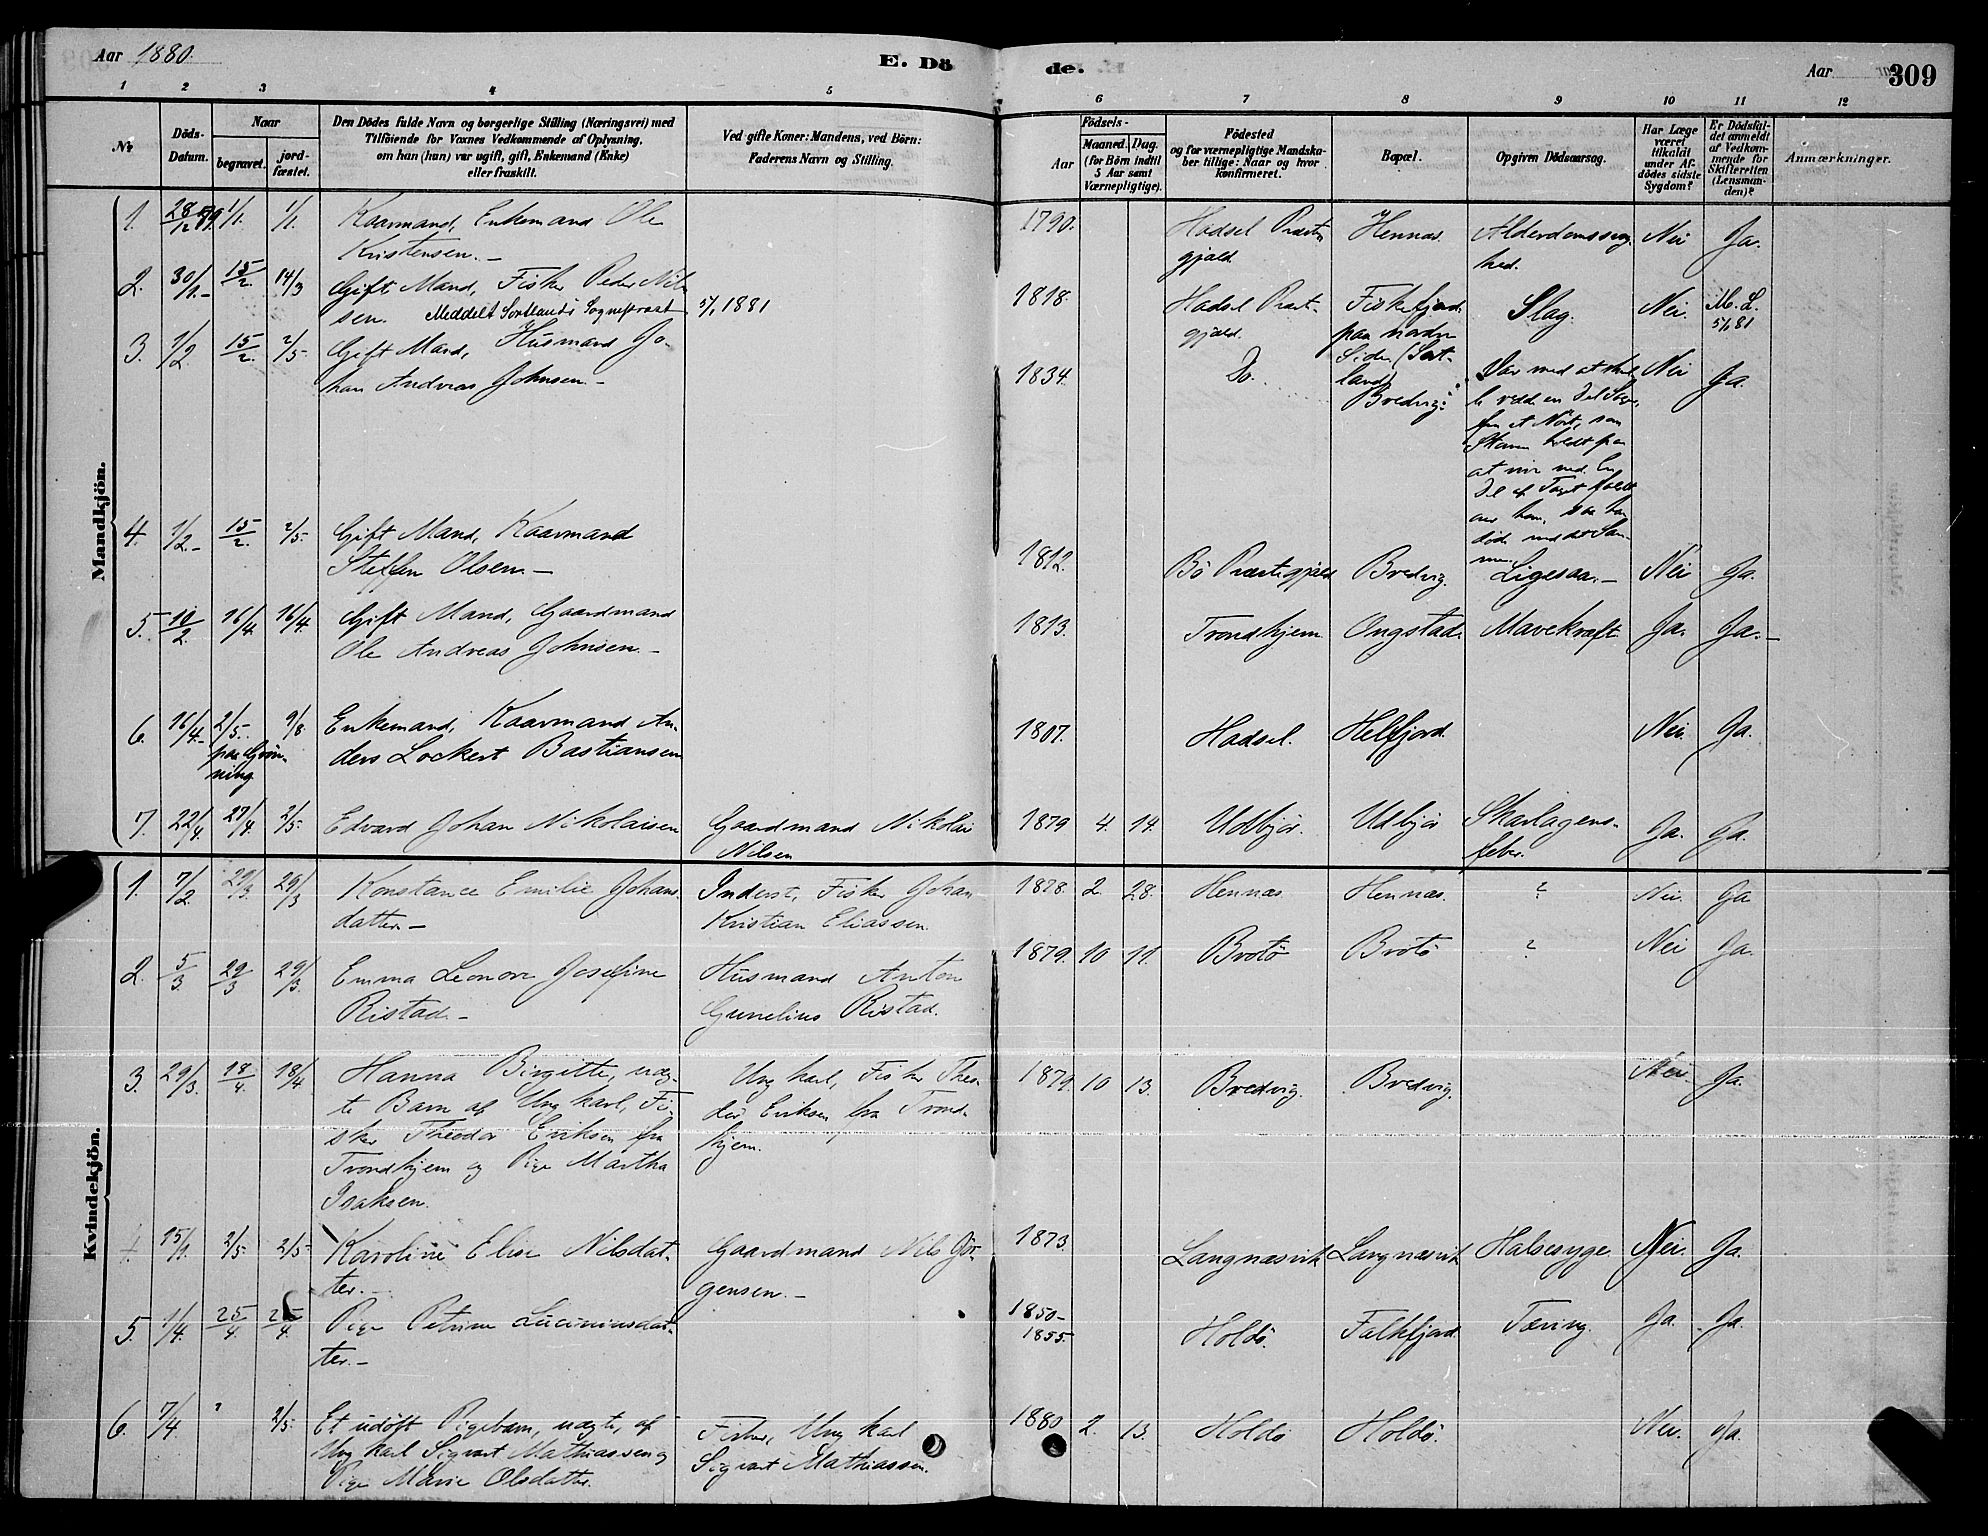 Aar 1880.
E. Dö
de.
Aar
309
1 2 3 4 5 6 7 8 9 10 11 12
No
Döds-
Datum.
Naar
begravet.
jord-
fæstet.
Den Dödes fulde Navn og borgerlige Stilling (Næringsvei) med
Tilföiende for Voxnes Vedkommende af Oplysning,
om han (hun) var ugift, gift, Enkemand (Enke)
eller fraskilt.
Ved gifte Koner: Mandens, ved Börn:
Faderens Navn og Stilling.
Födsels-
Aar
Maaned. Dag.
(for Börn indtil
5 Aar samt
Værnepligtige).
Födested
og for værnepligtige Mandska-
ber tillige: Naar og hvor
konfirmeret.
Bopæl.
Opgiven Dödsaarsag.
Har Læge
været
tilkaldt
under Af-
dödes sidste
Sygdom?
Er Dödsfal-
det anmeldt
af Vedkom-
mende for
Skifteretten
(Lensman-
den)?
Anmærkninger.
Mandkjön.
1. 28/12 79 1/1. 1/1. Kaarmand, Enkemand Ole
Kristensen.-
1790. Hadsel Præste-
gjæld. Hennæs. Alderdomssvag-
hed. Nei Ja.
2. 30/1.- 15/2. 14/3 Gift Mand, Fisker Peder Nil-
sen. Meddelt Sortlands Sognepræst 5/1 1881
1818. Hadsel Præst-
gjæld. Fiskefjord
paa nordre
Side (Sort-
land) Slag. Nei. M. L.
5/1 81
3. 1/2. 15/2. 2/5. Gift Mand, Husmand Jo-
han Andreas Johnsen.-
1834. Do. Bredvig. Var med at
redde en Del
fra et Nöst, som
Stormen
at rive ned. En
Del af Taget faldt
over ham, saa han
döde med det Sam-
me. Nei Ja.
4. 1/2.- 15/2. 2/5. Gift Mand, Kaarmand
Steffen Olsen.-
1812. Bö Præstegjæld Bredvig. Ligesaa.- Nei Ja.
5. 10/2. 16/4. 16/4. Gift Mand, Gaardmand
Ole Andreas Johnsen.-
1813. Trondhjem Ongstad. Mavekræft. Ja. Ja.-
6. 16/4.- 2/5.- 9/8. Enkemand, Kaarmand An-
ders Lockert Bastiansen
paa Grön-
ning
1807. Hadsel. Helfjord. Nei. Ja.
7. 22/4. 27/4. 2/5. Edvard Johan Nikolaisen Gaardmand Nikolai
Nilsen
1879 4. 14. Udbjör. Udbjör Skarlagens-
feber. Ja. Ja.
Kvindekjön.
1. 7/2. 29/3. 29/3 Konstance Emilie Johans-
datter.- Inderst, Fisker Johan
Kristian Eliassen.
1878. 2. 28. Hennæs. Hennæs. ? Nei. Ja
2. 5/3. 29/3 29/3. Emma Leonore Josefine
Ristad.- Husmand Anton
Gunelius Ristad.
1879. 10 11. Brotö Brotö ? Nei Ja.
3. 29/3. 18/4. 18/4 Hanna Birgitte, uæg-
te Barn af Ung karl, Fi-
sker Theodor Eriksen fra
Trondhjem og Pige Martha
Isaksen. Ung karl, Fisker Theo-
dor Eriksen fra Trond-
hjem.
1879. 10 13. Bredvig. Bredvig. Nei. Ja.
4. 15/1. 2/5. 2/5- Karoline Elise Nilsdat-
ter.- Gaardmand Nils Jör-
gensen.-
1873. Langnæsvik Langnæsvik Halsesyge. Nei. Ja.
5. 1/4. 25/4. 25/4. Pige Petrine Lucinusdat-
ter.-
1850-
1855. Holdö. Falkfjord. Tæring. Ja. Ja.
6. 7/4. ? 2/5. Et udöft Pigebarn, uægte, af
Ung karl Sigvart Mathiassen og
Pige Marie Olsdatter. Fisker, Ung karl
Sigvart Mathiassen.
1880 2. 13. Holdö Holdö. Nei. Ja.